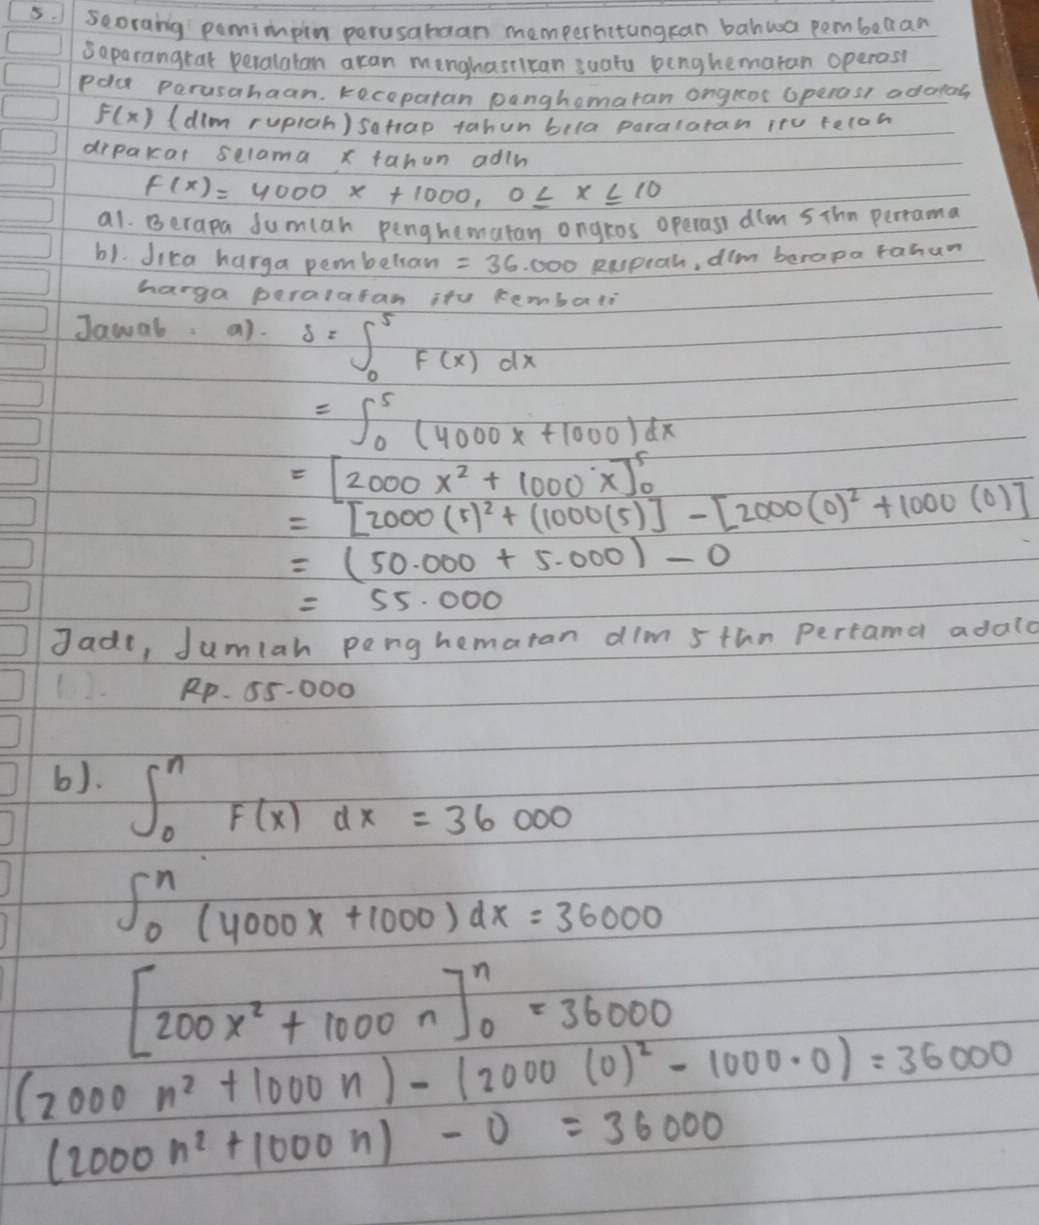 5. Seorang pemimpin perusahaan memperhitungkan bahwa pembelian
Seperangkat peralatan akan menghasilkan suatu penghematan operasi
pda perusahaan. Kecepatan penghematan ongkos operasi adalah
F(x) (dlm rupiah) setiap tahun bila peralatan itu telah
dipakai selama x tahun adlh
F(x) = 4000 x + 1000, 0 ≤ x ≤ 10
a). Berapa Jumlah penghematan ongkos operasi dlm 5 thn pertama
b). Jika harga pembelian = 36.000 Rupiah, dlm berapa tahun
harga peralatan itu kembali
Jawab. a). S = ∫₀⁵ F(x) dx
= ∫₀⁵ (4000x + 1000) dx
= [2000 x² + 1000 x]₀⁵
= [2000(5)² + (1000(5)] - [2000(0)² + 1000 (0)]
= (50.000 + 5.000) - 0
= 55.000
Jadi, Jumlah penghematan dlm 5 thn Pertama adala
Rp. 55.000
b). ∫₀ⁿ F(x) dx = 36 000
∫₀ⁿ (4000x + 1000) dx = 36000
[200x² + 1000 n]₀ⁿ = 36000
(2000 n² + 1000 n) - (2000 (0)² - 1000 · 0) = 36000
(2000 n² + 1000 n) - 0 = 36000